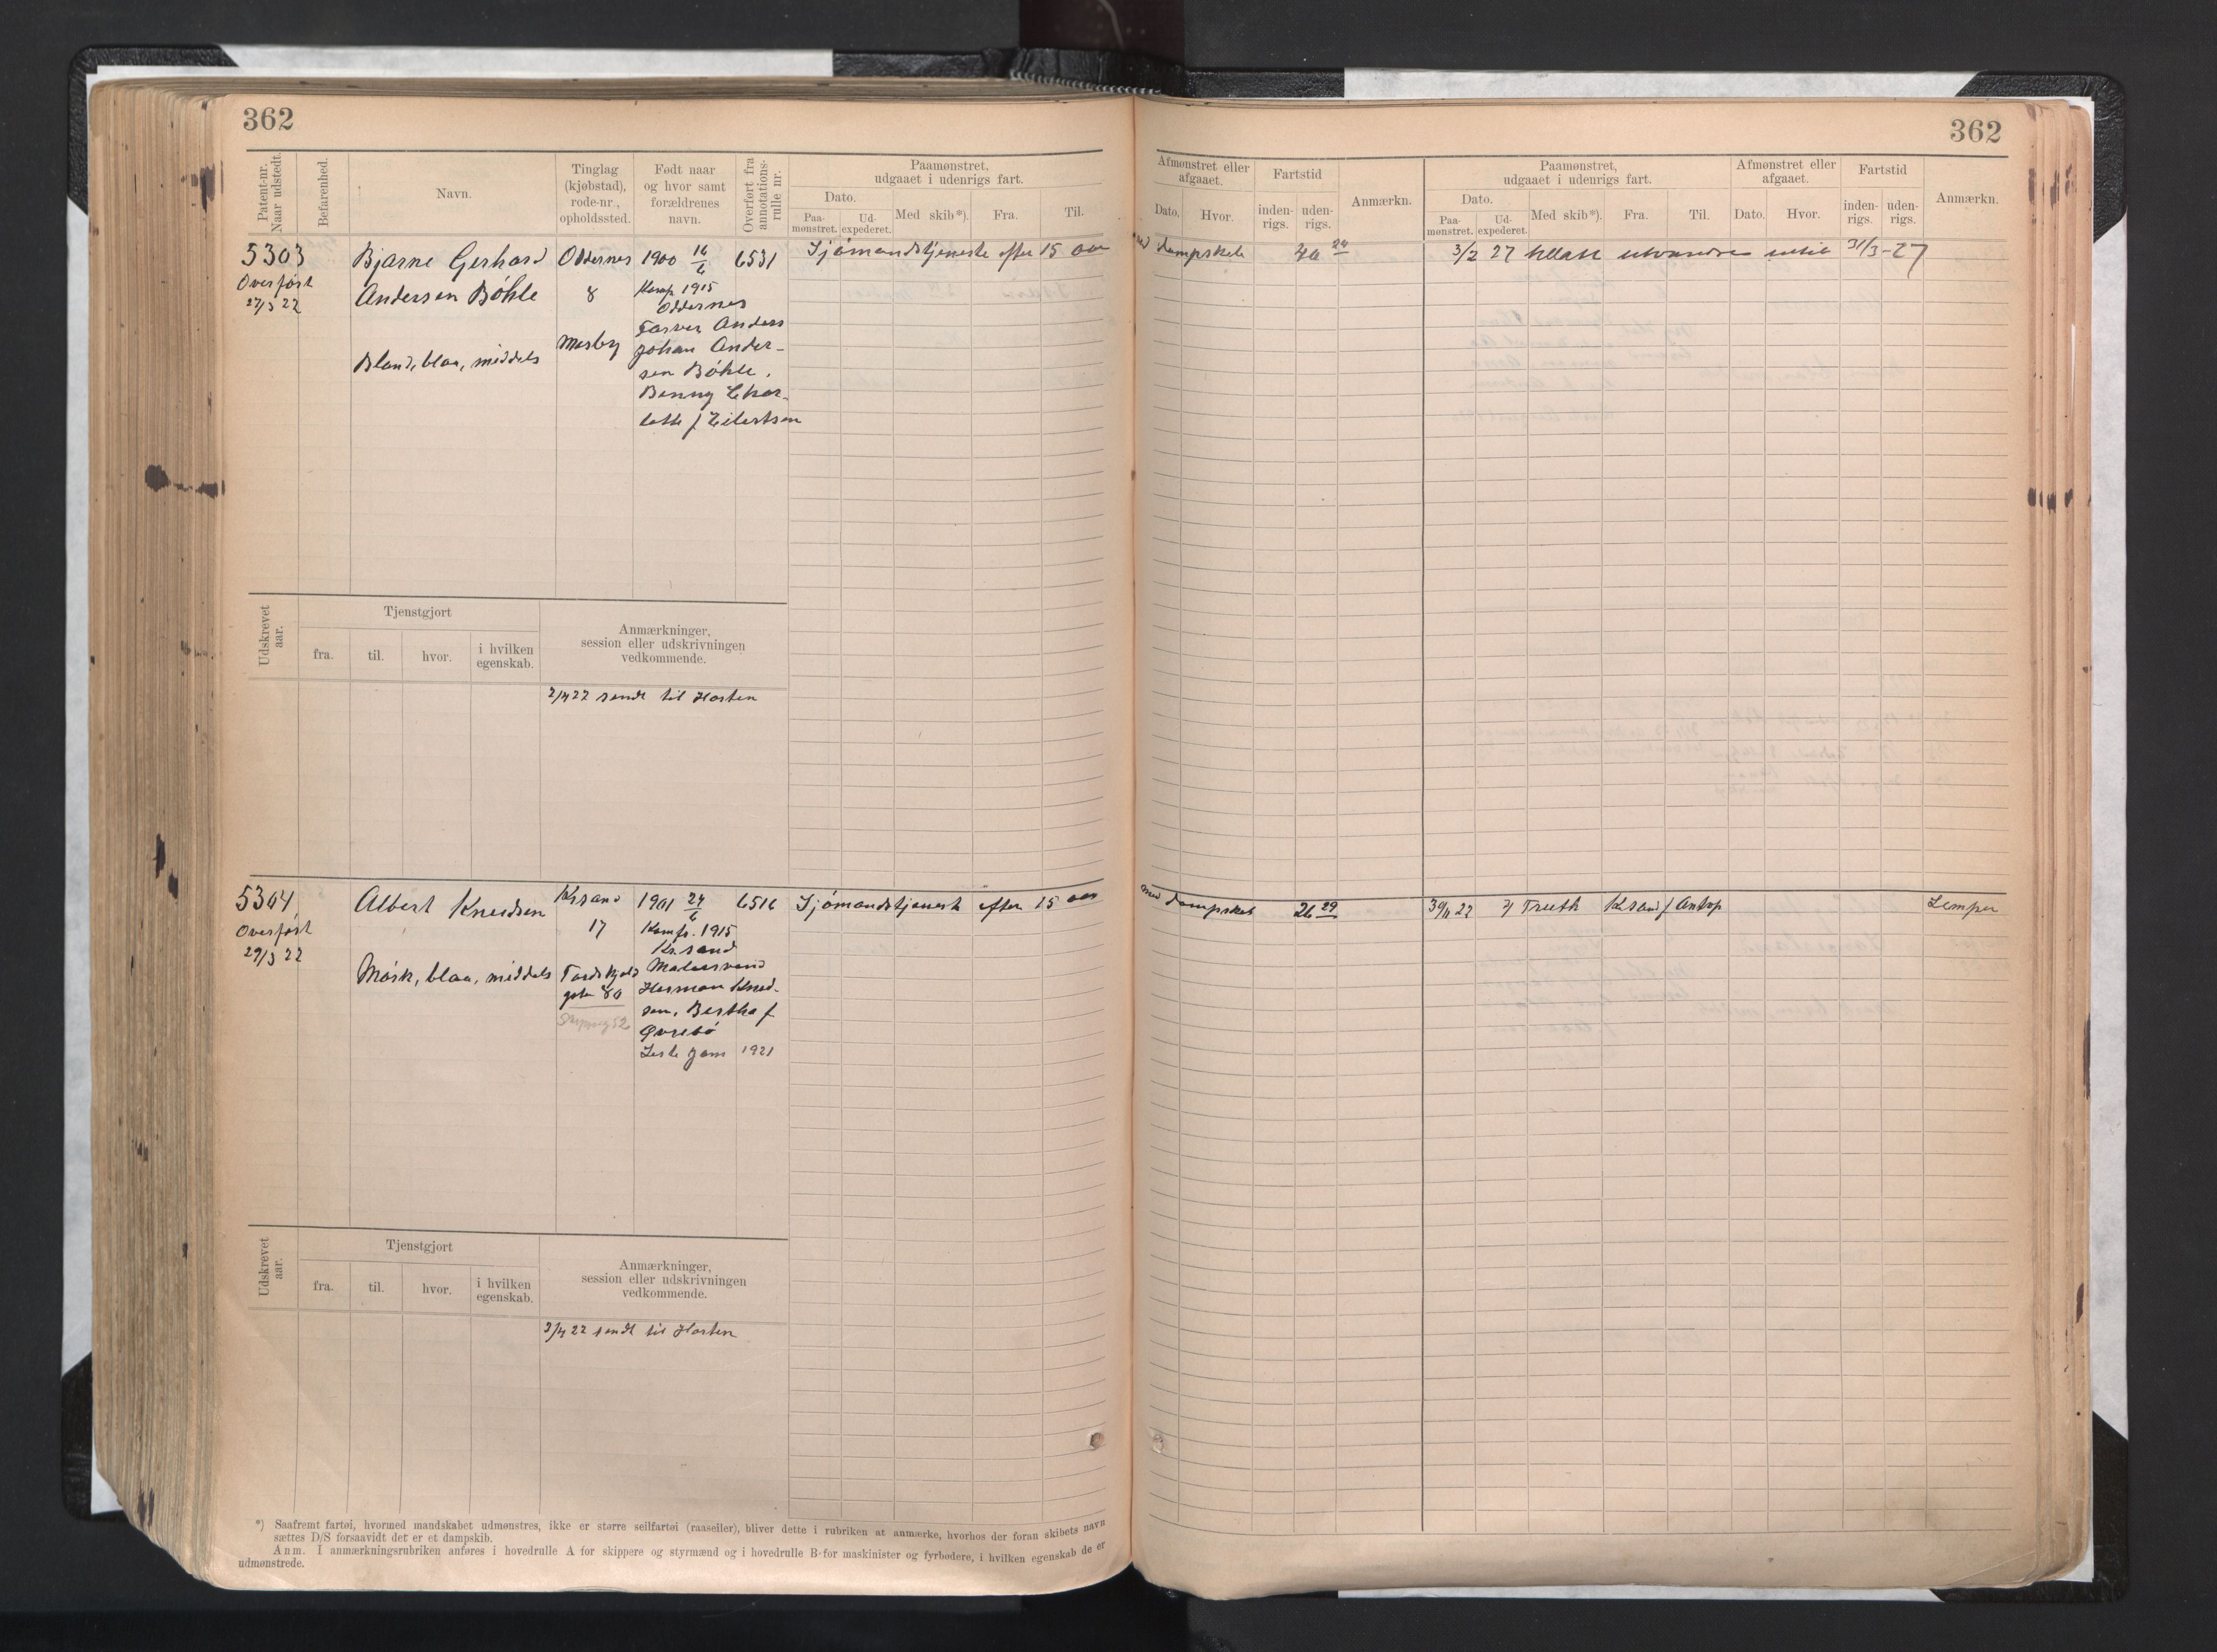 362
362
Patent-nr.
Naar udstedt.
Befarenhed.
Navn.
Tinglag
(kjøbstad),
rode-nr.,
opholdssted.
Født naar
og hvor samt
forældrenes
navn.
Overført fra
annotations-
rulle nr.
Paamønstret,
udgaaet i udenrigs fart.
Dato.
Paa-
mønstret.
Ud-
expederet.
Med skib*).
Fra.
Til.
Afmønstret eller
afgaaet.
Dato.
Hvor.
Fartstid
inden-
rigs.
uden-
rigs.
Anmærkn.
Paamønstret,
udgaaet i udenrigs fart.
Dato.
Paa-
mønstret.
Ud-
expederet.
Med skib*).
Fra.
Til.
Afmønstret eller
afgaaet.
Dato.
Hvor.
Fartstid
inden-
rigs.
uden-
rigs.
Anmærkn.
5303
Overført
27/3 22
Bjarne Gerhard
Andersen Bøhle
Bland, blaa, middels
Oddernes
8
Mosby
1900 16/6
Komf. 1915
Oddernes
Farver Anders
Johan Ander-
sen Bøhle,
Benny Char-
lotte f. Eilertsen
6531
Sjømandstjeneste efter 15 aar
med dampskib 40 24
3/2 27 tillatt utvandre intil 31/3-27
Udskrevet
aar.
Tjenstgjort
fra.
til.
hvor.
i hvilken
egenskab.
Anmærkninger,
session eller udskrivningen
vedkommende.
2/4 22 sendt til Horten
5304
Overført
29/3 22
Albert Knudsen
Mørk, blaa, middels
Krsand
17
Tordskjolds
gate 80
1901 24/6
Komf. 1915
Kr.sand
Matersvend
Herman Knud-
sen, Bertha f.
Øvrebø
1921
6516
Sjømandstjeneste efter 15 aar
med dampskib 26 29
22 Truth Krsand / Antvp
Lemper
Udskrevet
aar.
Tjenstgjort
fra.
til.
hvor.
i hvilken
egenskab.
Anmærkninger,
session eller udskrivningen
vedkommende.
3/4 22 sendt til Horten
*) Saafremt fartøi, hvormed mandskabet udmønstres, ikke er større seilfartøi (raaseiler), bliver dette i rubriken at anmærke, hvorhos der foran skibets navn
sættes D/S forsaavidt det er et dampskib.
Anm. I anmærkningsrubriken anføres i hovedrulle A for skippere og styrmænd og i hovedrulle B for maskinister og fyrbødere, i hvilken egenskab de er
udmønstrede.